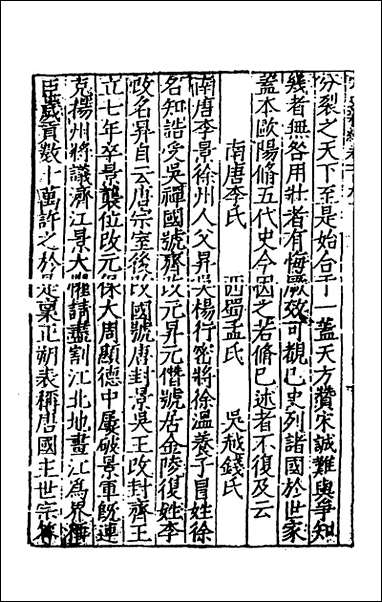 分裂之天下至是始合于一蓋天方贊宋誠難與爭知
幾者無咎用壯者有悔厥效可覩已史列諸國於世家
蓋本歐陽脩五代史今因之若脩已述者不復及云
南唐李氏　西蜀孟氏　吳越錢氏
南唐李景徐州人父昇吳楊行密將徐溫養子冒姓徐
名知誥受吳禪國號齊改元昇元僭號居金陵復姓李
改名昇自云唐宗室後改國號唐封景吳王改封齊王
立七年卒景襲位改元保大周顯德中屢破景軍既連
克揚州將議濟江景大懼請盡割江北地畫江為界稱
臣歲貢數十萬許之於是稟正朔表稱唐國主世宗答